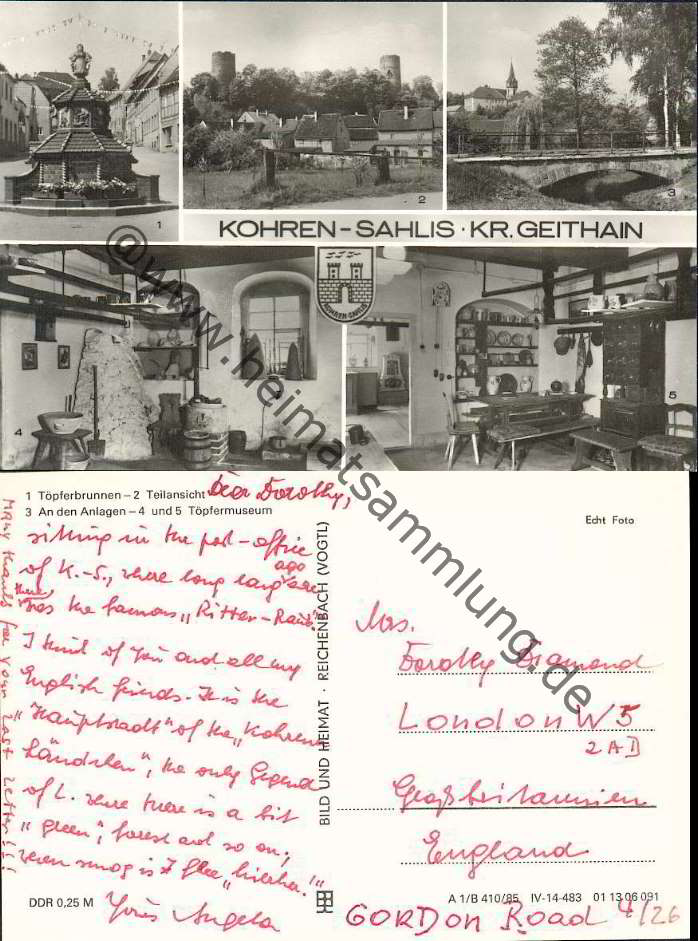 1
2
3
KOHREN-SAHLIS · KR. GEITHAIN
KOHREN-SAHLIS
4
5
@www.heimatsammlung.de
1 Töpferbrunnen – 2 Teilansicht
3 An den Anlagen – 4 und 5 Töpfermuseum
Dear Dorothy,
sitting in the post-office
of K.-S., where long long ago
there was the famous „Ritter-Raub"
I think of you and all my
English friends. It is the
„Hauptstadt" of the „Kohrener
Ländchen", the only Gegend
of L. where there is a bit
„green", forest and so on;
when smog is I flee „hierher!"
Yours Angela
Many thanks for your last letter!!!
DDR 0,25 M
BILD UND HEIMAT · REICHENBACH (VOGTL)
Echt Foto
Mrs.
Dorothy Diamond
London W5
2AD
Großbritannien
England
A 1/B 410/85 IV-14-483 01 13 06 091
GORDON ROAD 4/26